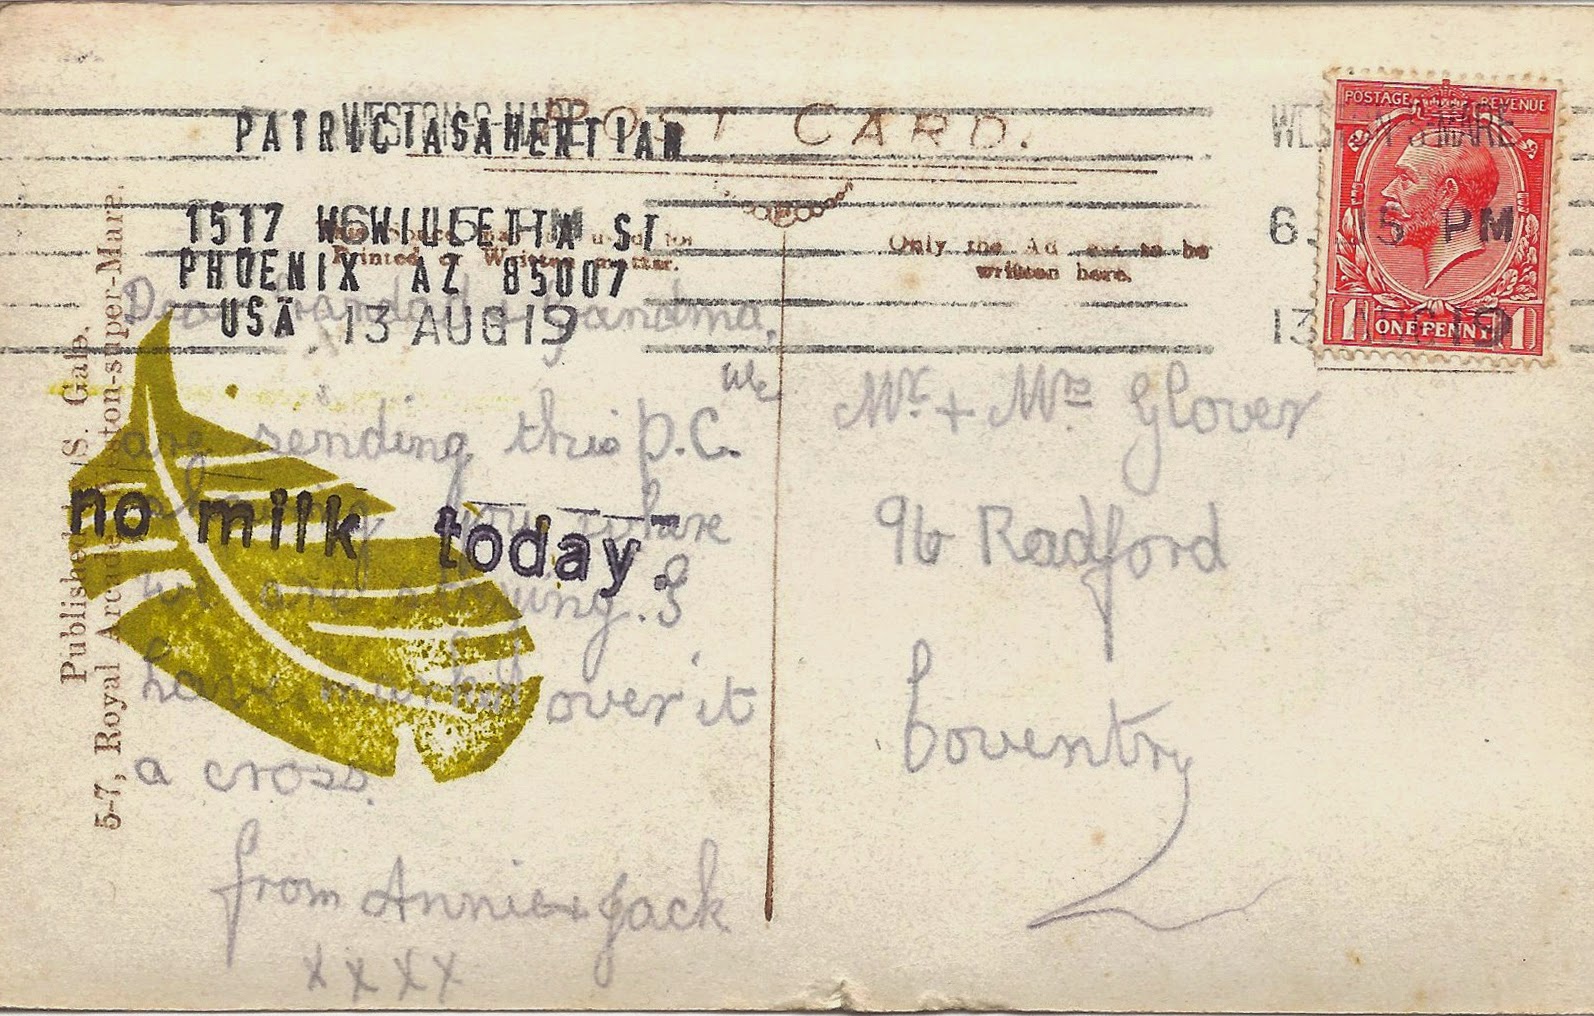 POST CARD.
WESTON-S-MARE
6. 15 PM
13 AUG 19
POSTAGE REVENUE
ONE PENNY
1 1
PATRICIASAHERTIAN
1517 W
ST
PHOENIX AZ 85007
USA
WESTON-S-MARE
6. 15 PM
13 AUG 19
Printed or Written matter.
Only the Address to be
written here.
Dear Grandad & Grandma,
We
are sending this P.C.
showing you where
we are staying. I
have marked over it
a cross.
from Annie + Jack
x x x x
no milk today.
Mr + Mrs Glover
96 Radford
Coventry
Published S. Gale.
5-7, Royal Arcade Weston-super-Mare.